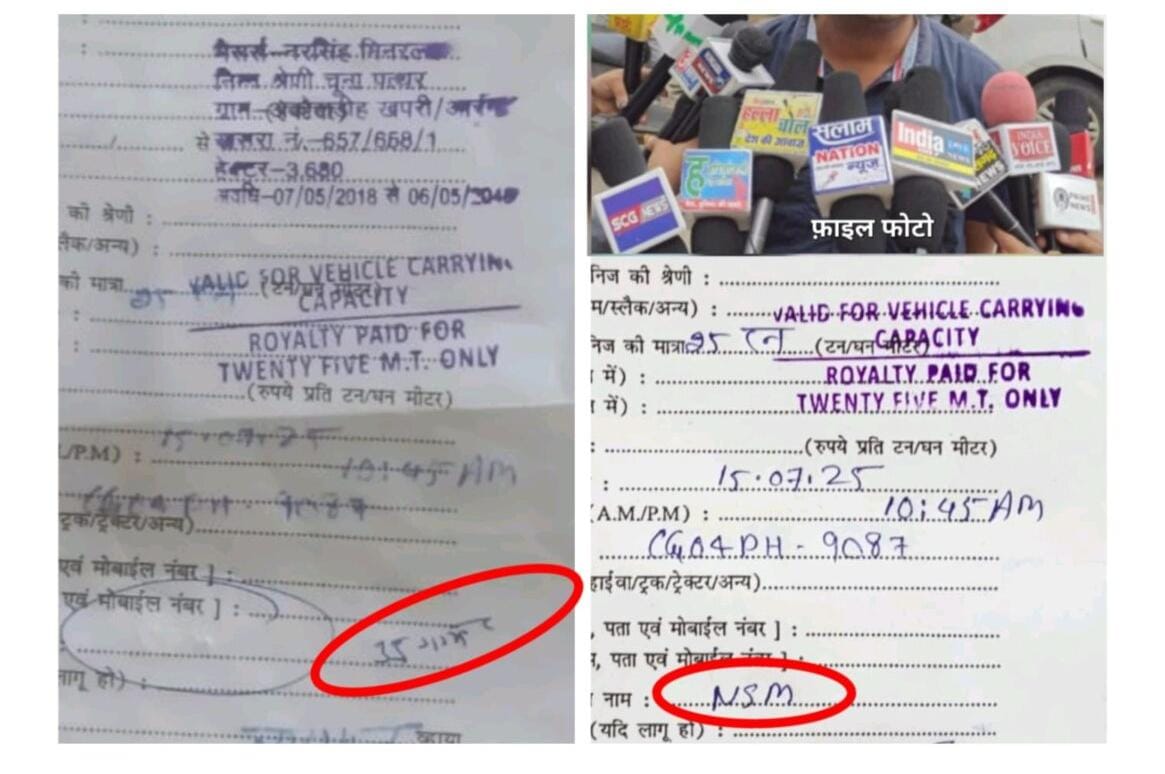 मैसर्स-नरसिंह मिनरल
निम्न श्रेणी चूना पत्थर
ग्राम- खपरी/आरंग
से खसरा नं.-657/668/1
हेक्टर-3.680
अवधि-07/05/2018 से 06/05/2048
की श्रेणी :
लैक/अन्य) :
VALID FOR VEHICLE CARRYING
की मात्रा 25 टन (टन/घन मीटर)
CAPACITY
ROYALTY PAID FOR
TWENTY FIVE M.T. ONLY
(रुपये प्रति टन/घन मीटर)
15.07.25
/P.M) : 10:45 AM
CG04PH-9087
ट्रक/ट्रेक्टर/अन्य)
एवं मोबाईल नंबर ] :
एवं मोबाईल नंबर ] :
लागू हो) :
हल्ला
बोल
देश की आवाज
सलाम
NATION
न्यूज़
India
INDIA
VOICE
NEWS
PRIME
NEWS
SCG NEWS
ह
फ़ाइल फोटो
निज की श्रेणी :
म/स्लैक/अन्य) :
VALID FOR VEHICLE CARRYING
निज की मात्रा 25 टन (टन/घन मीटर)
CAPACITY
में) :
ROYALTY PAID FOR
में) :
TWENTY FIVE M.T. ONLY
(रुपये प्रति टन/घन मीटर)
: 15.07.25
(A.M./P.M) : 10:45 AM
CG04PH-9087
हाईवा/ट्रक/ट्रेक्टर/अन्य)
, पता एवं मोबाईल नंबर ] :
, पता एवं मोबाईल नंबर ] :
नाम : NSM
(यदि लागू हो) :